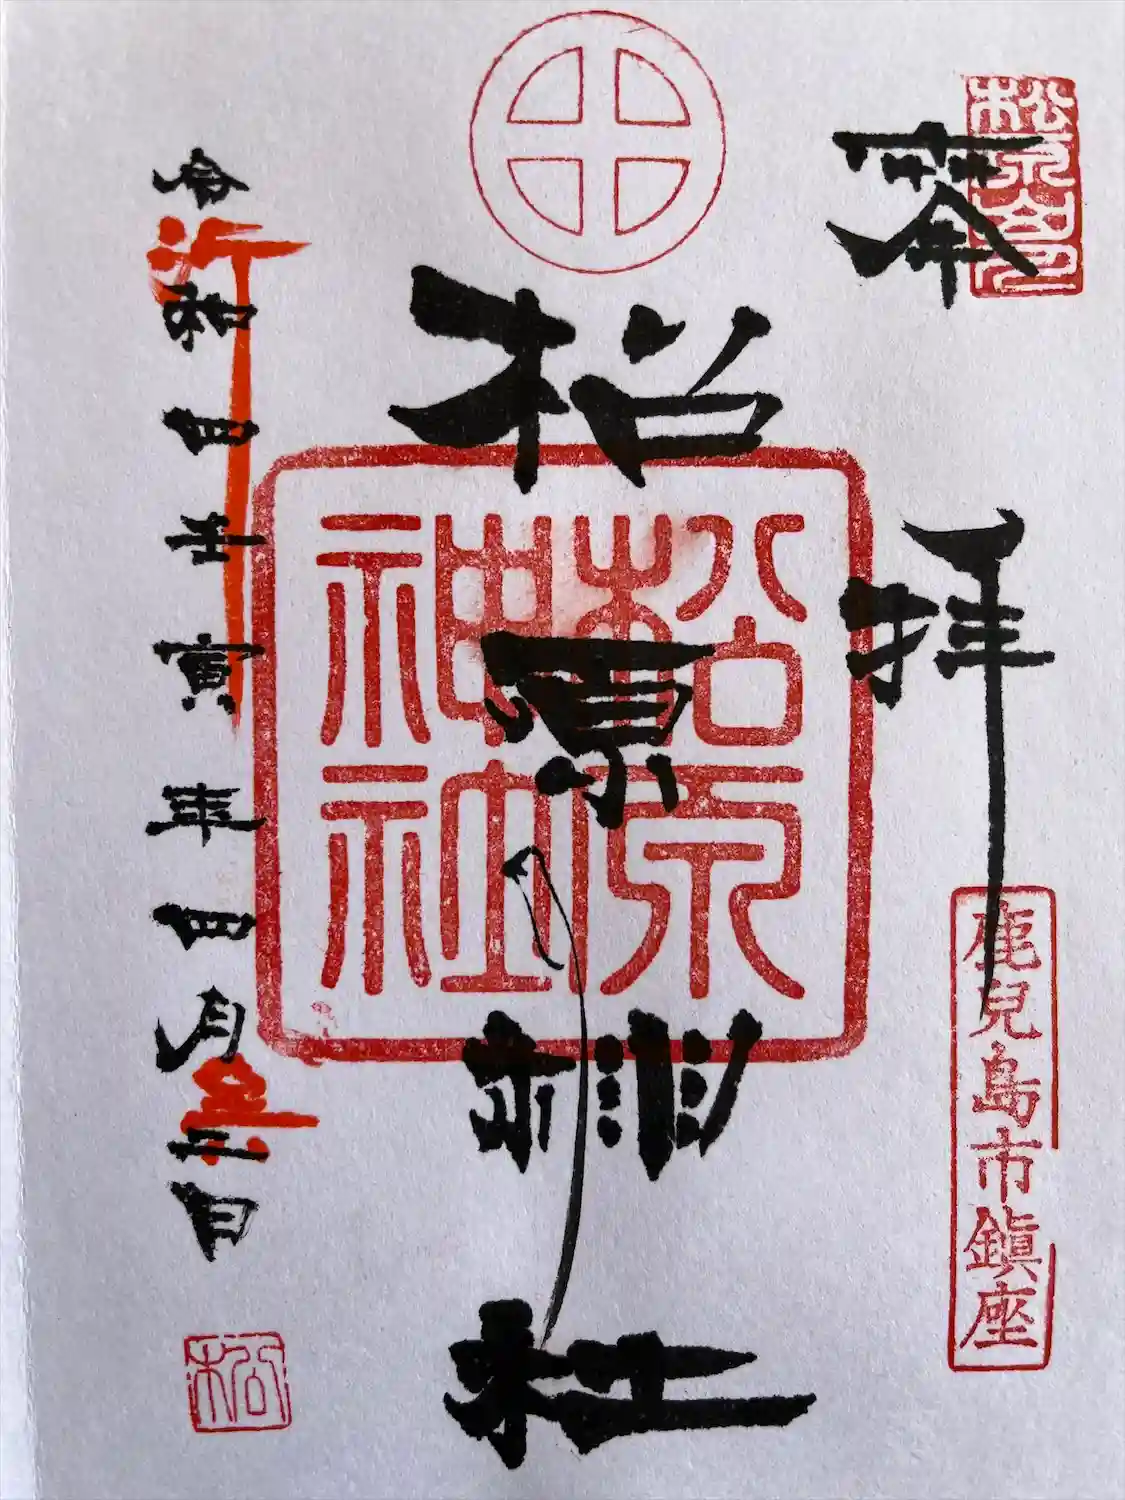 奉拝
鹿兒島市鎭座
松原神社
松原神社
令和四壬寅年四月二日
松